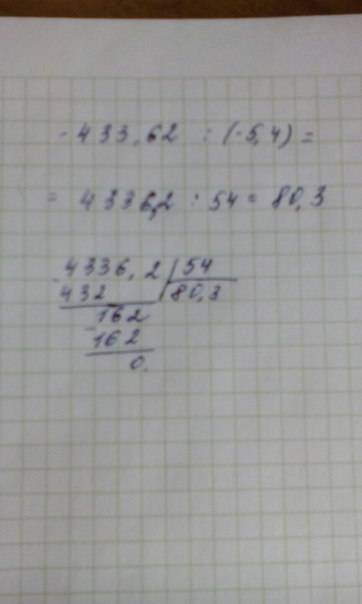 -433,62 : (-5,4) =
= 4336,2 : 54 = 80,3
-4336,2 | 54
432 | 80,3
-162
162
0.